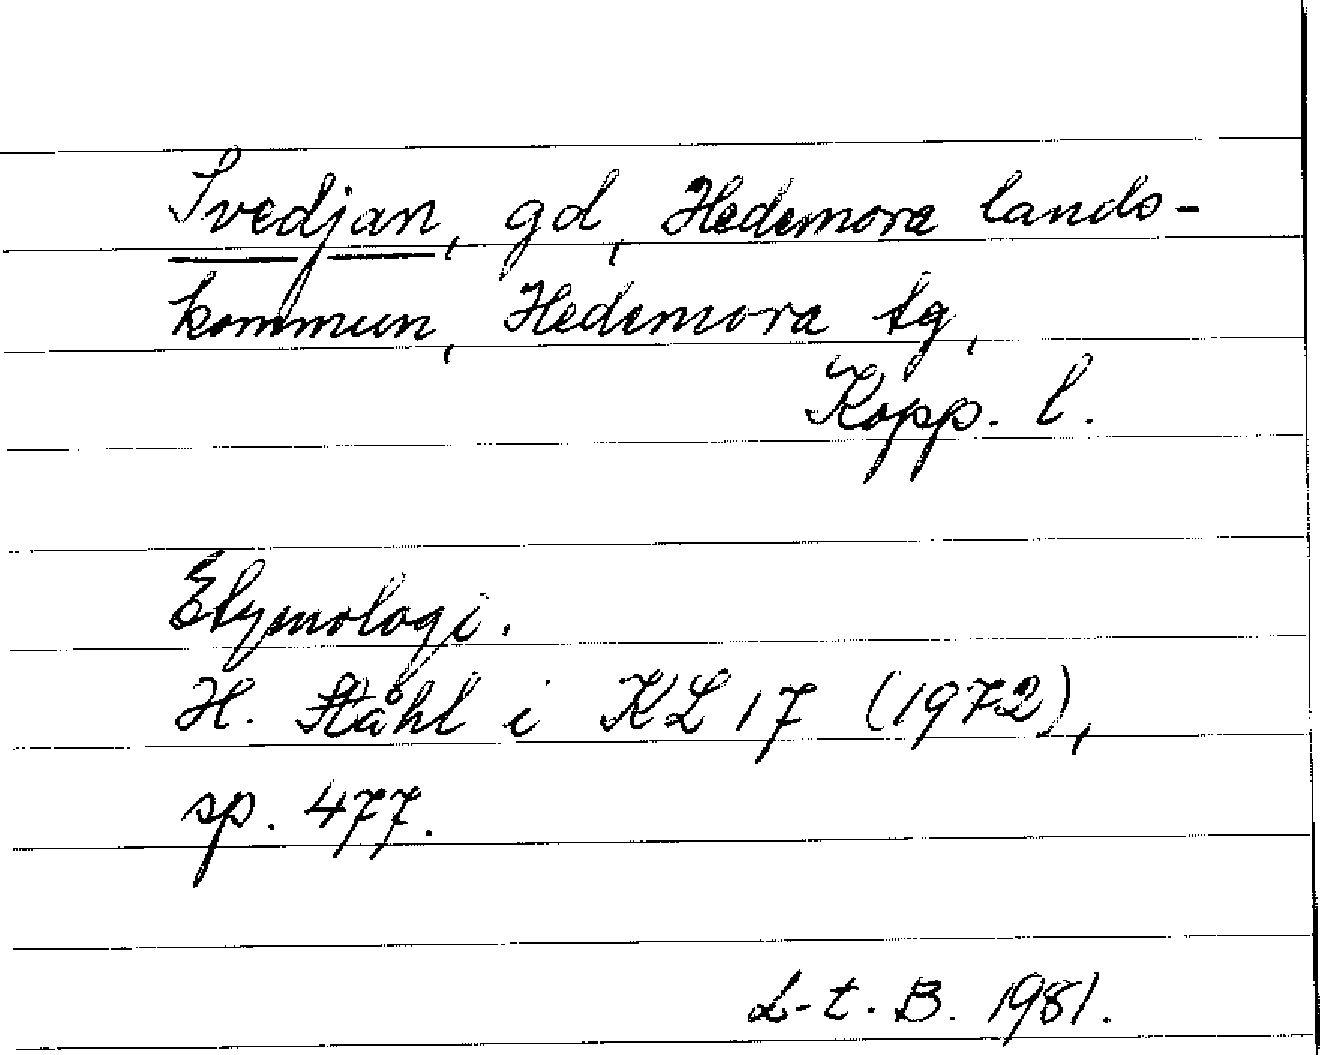 Svedjan, gd, Hedemora lands-
kommun, Hedemora tg,
Kopp. l.
Etymologi.
H. Ståhl i KL 17 (1972),
sp. 477.
L-t. B. 1981.